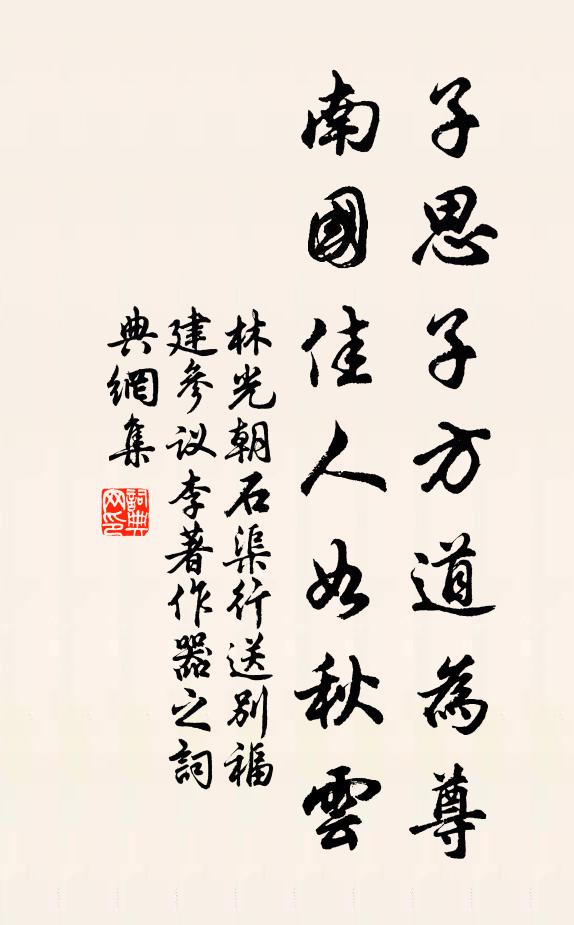 子思子方道為尊
南國佳人如秋雲
林光朝石渠行送別福
建參议李著作器之詞
典網集
詞典
网印